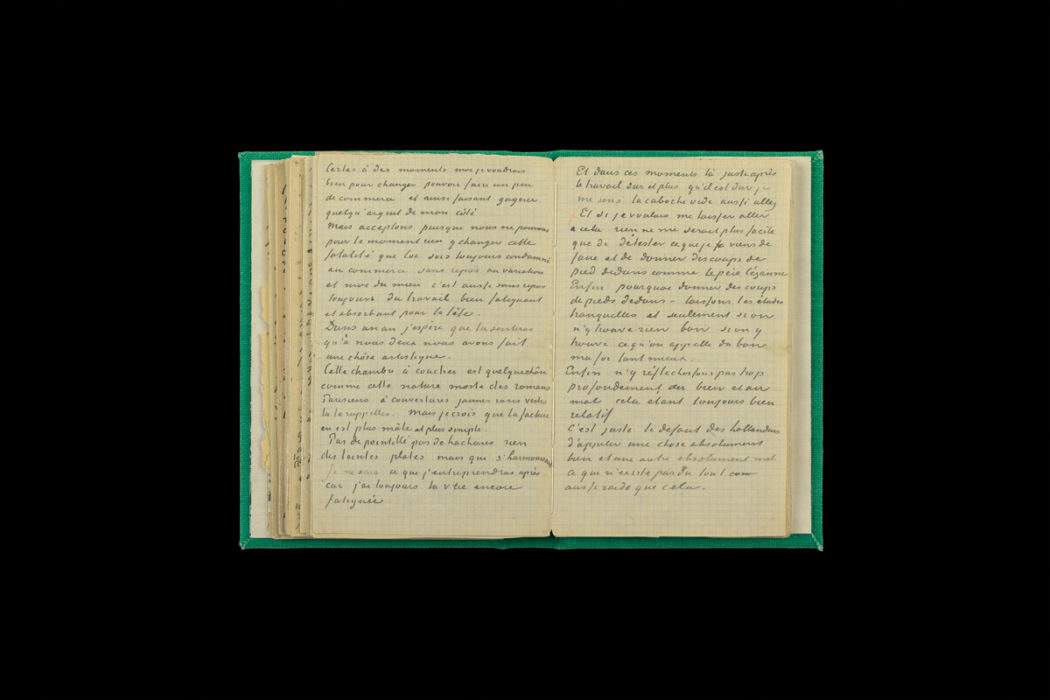 Certes à des moments moi je voudrais
bien pour changer pouvoir faire un peu
de commerce et ainsi faisant gagner
quelqu'argent de mon côté
Mais acceptons puisque nous ne pouvons
pour le moment rien y changer cette
fatalité que toi sois toujours condamné
au commerce sans repos ou variation
et moi du mien c'est aussi sans repos
toujours du travail bien fatiguant
et absorbant pour la tête.
Dans un an j'espère que tu sentiras
qu'à nous deux nous avons fait
une chôse artistique.
Cette chambre à coucher est quelquechose
comme cette nature morte des romans
Parisiens à couvertures jaunes roses vertes
tu te rappelles. Mais je crois que la facture
en est plus mâle et plus simple.
Pas de pointillé pas de hachures rien
des teintes plates mais qui s'harmonisent
Je ne sais ce que j'entreprendrai après
car j'ai toujours la vue encore
fatiguée
Et dans ces moments là juste après
le travail dur et plus qu'il est dur je
me sens la caboche vide aussi allez
Et si je voulais me laisser aller
à cela rien ne me serait plus facile
que de détester ce que je viens de
faire et de donner des coups de
pied dedans comme le père Cézanne
Enfin pourquoi donner des coups
de pieds dedans – laissons les études
tranquilles et seulement si on
n'y trouve rien bon si on y
trouve ce qu'on appelle du bon
ma foi tant mieux.
Enfin n'y réflechissons pas trop
profondement au bien et au
mal cela étant toujours bien
relatif
C'est juste le défaut des hollandais
d'appeler une chose absolument
bien et une autre absolument mal
ce qui n'existe pas du tout
aussi raide que cela.